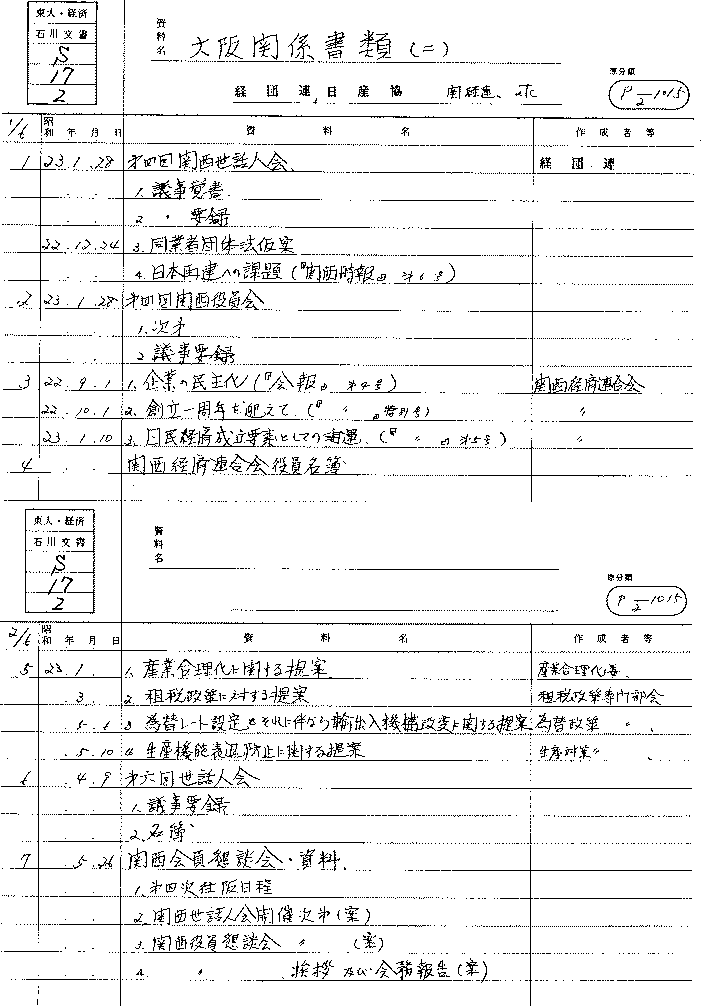 東大・経済
石川文書
S
17
2
資料名 大阪関係書類(二)
経団連、日産協 関経連、etc
原分類
P 2-1015
1/6 昭和 年 月 日 資 料 名 作 成 者 等
1 23.1.28 第四回関西世話人会 経団連
1. 議事覚書
2. 〃 要録
22.12.24 3. 同業者団体法仮案
4. 日本再建への課題(『関西時報』第6号)
2 23.1.28 第四回関西役員会
1. 次第
2. 議事要録
3 22.9.1 1. 企業の民主化(『会報』第4号) 関西経済連合会
22.10.1 2. 創立一周年を迎えて(『〃』特別号) 〃
23.1.10 3. 国民経済成立要素としての海運(『〃』第5号) 〃
4 . . 関西経済連合会役員名簿
東大・経済
石川文書
S
17
2
資料名
原分類
P 2-1015
2/6 昭和 年 月 日 資 料 名 作 成 者 等
5 23.1. 1. 産業合理化に関する提案 産業合理化委
3. 2. 租税政策に対する提案 租税政策専門部会
5.6 3 為替レート設定とそれに伴なう輸出入機構改変に関する提案 為替政策 〃
5.10 4. 生産機能衰退防止に関する提案 生産対策〃
6 4.9 第六回世話人会
1. 議事要録
2. 名簿
7 5.26 関西会員懇談会・資料
1. 第四次往阪日程
2. 関西世話人会開催次第(案)
3. 関西役員懇談会 〃 (案)
4. 〃 挨拶及び会務報告(案)